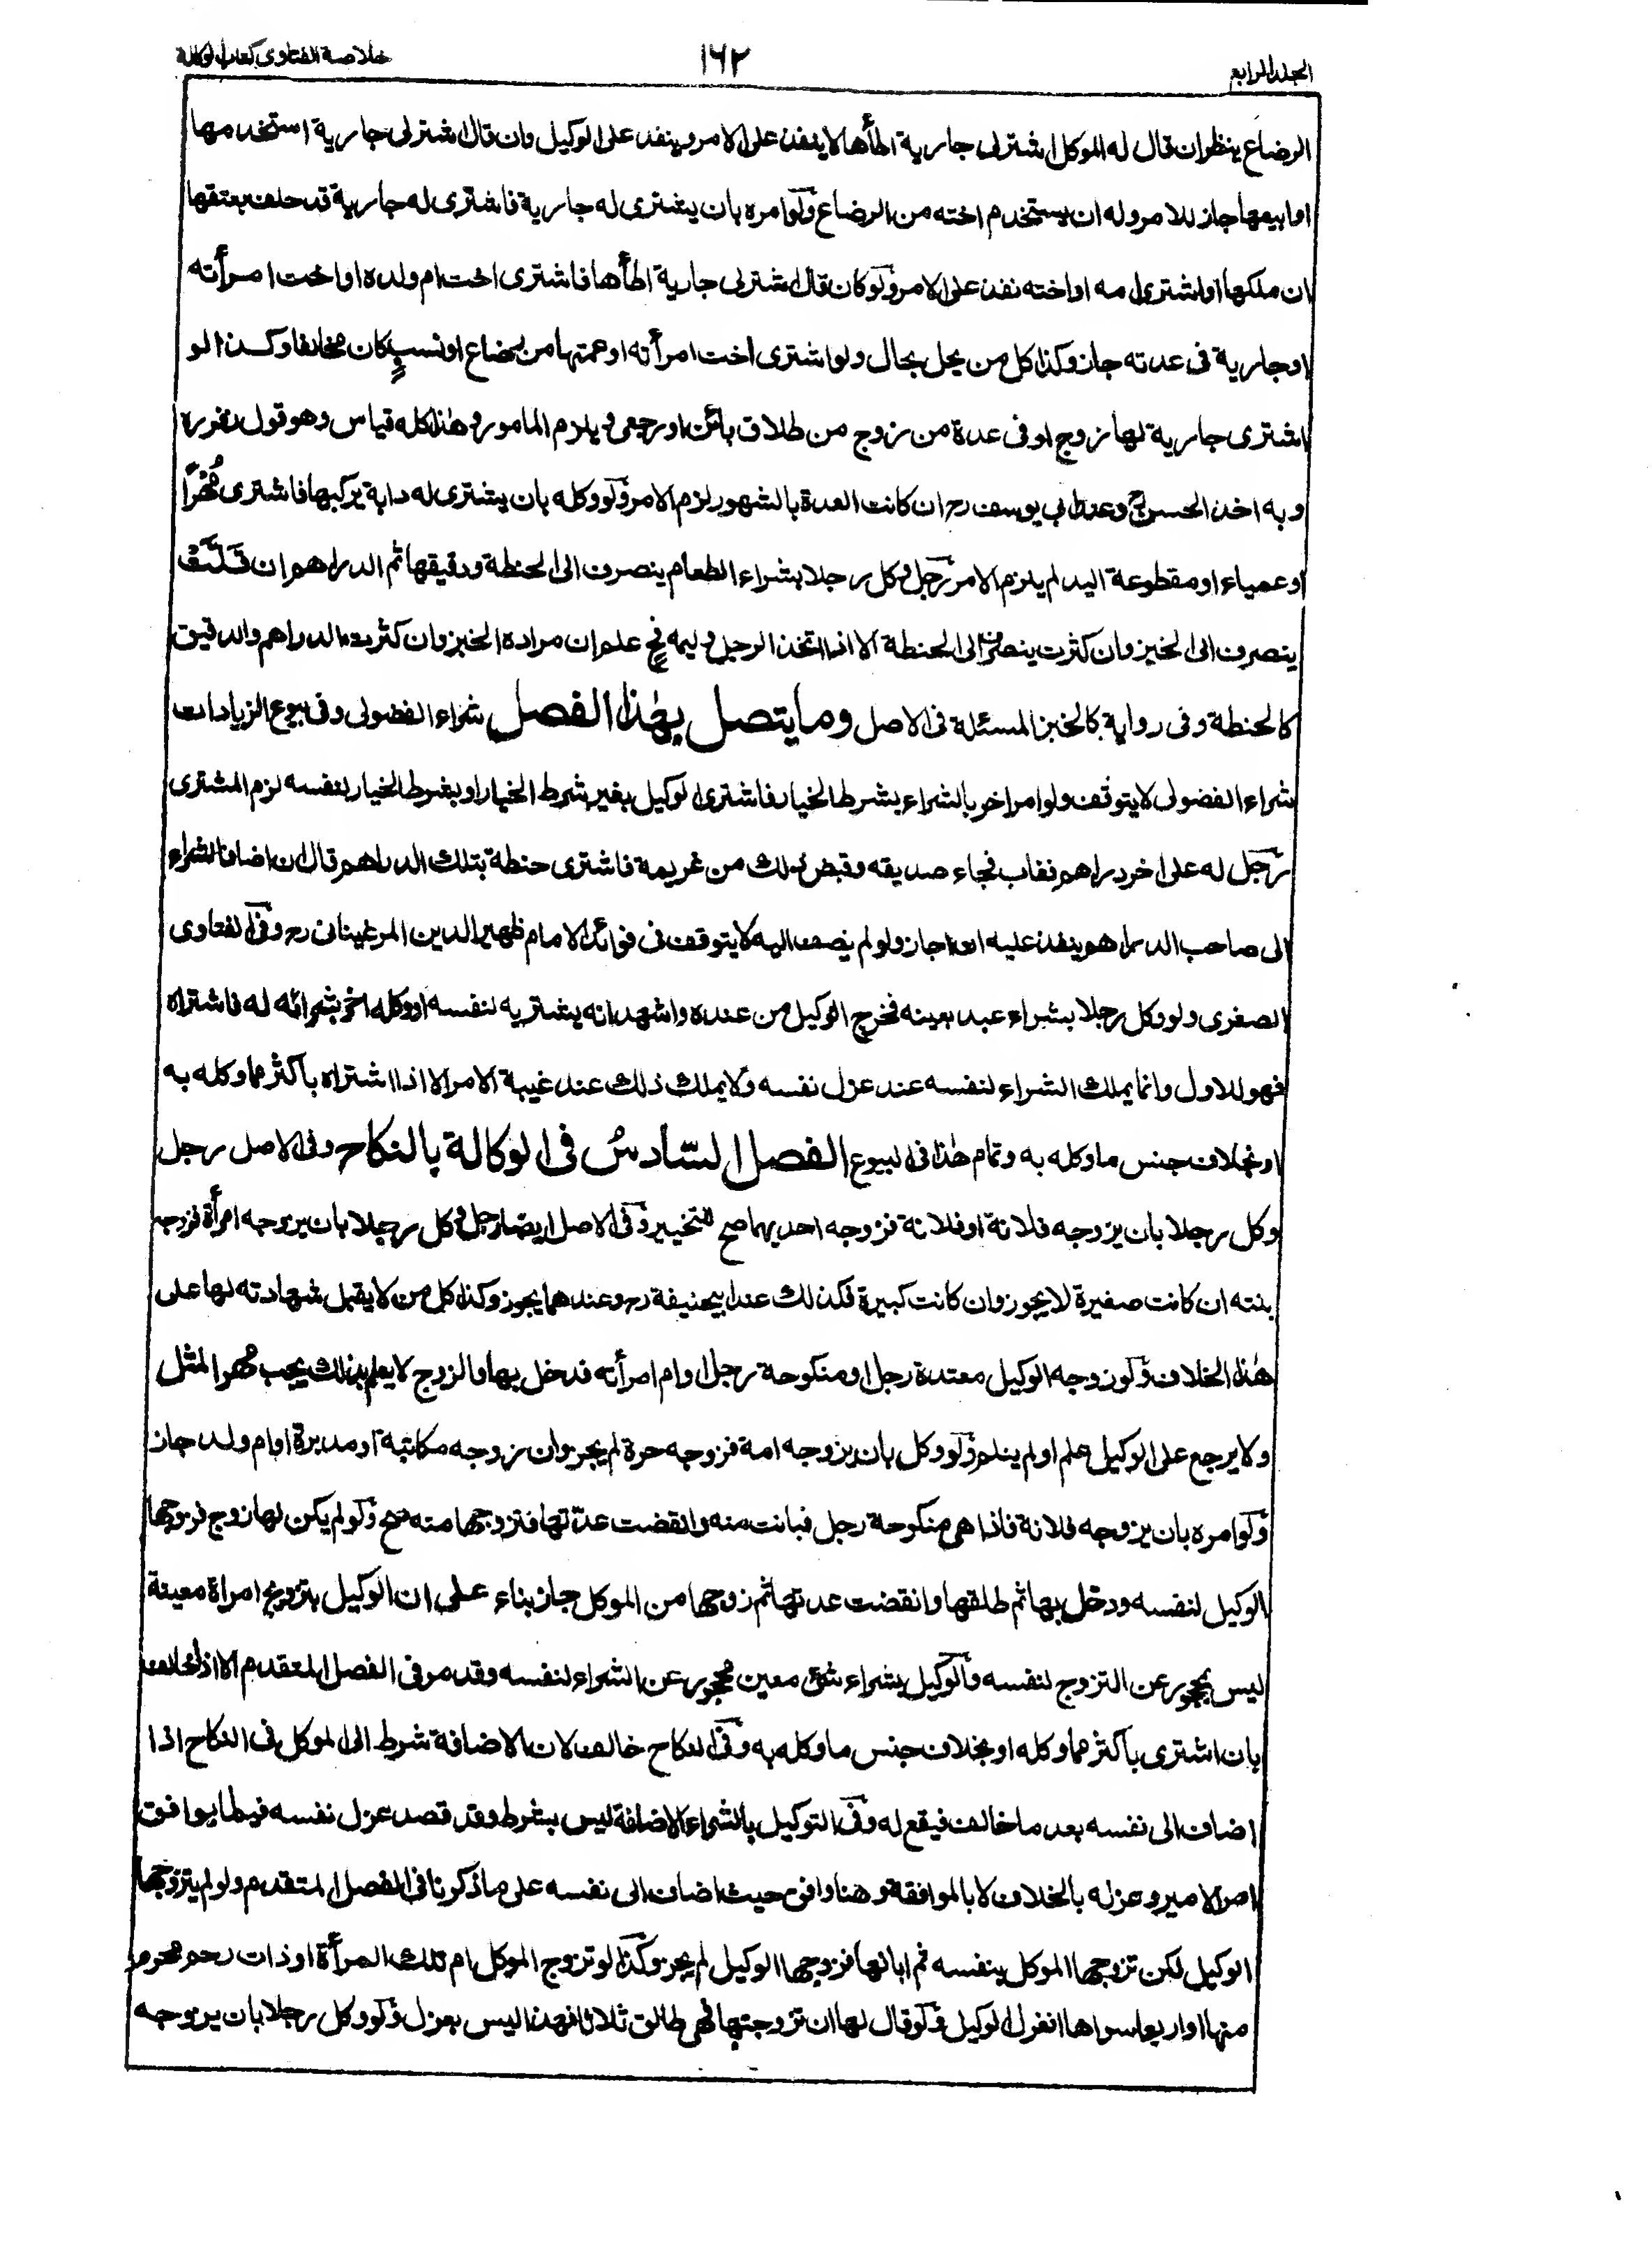 الجلد الرابع
١٦٢
خلاصة الفتاوى كتاب الوكالة
الرضاع ينظر ان قال له الموكل اشتر لى جارية اطأها لا ينفذ على الامر وينفذ على الوكيل وان قال اشتر لى جارية استخدمها
او ابيعها جاز للامر وله ان يستخدم اخته من الرضاع ولو امره بان يشترى له جارية فاشترى له جارية قد حلف بعتقها
ان ملكها او اشترى امه او اخته نفذ على الامر ولو كان قال اشتر لى جارية اطأها فاشترى اخت ام ولده او اخت امرأته
او جارية فى عدته جاز وكذا كل من يحل بحال ولو اشترى اخت امرأته او عمتها من رضاع او نسب كان مخالفا وكذا لو
اشترى جارية لها زوج او فى عدة من زوج من طلاق بائن او رجعى ويلزم المامور وهذا كله قياس وهو قول زفر ره
وبه اخذ الحسن رح وعند ابى يوسف رح ان كانت العدة بالشهور لزم الامر ولو وكله بان يشترى له دابة يركبها فاشترى مُهْرًا
او عمياء او مقطوعة اليد لم يلزم الامر رجل وكل رجلا بشراء الطعام ينصرف الى الحنطة ودقيقها ثم الدراهم ان قَلَّتْ
ينصرف الى الخبز وان كثرت ينصرف الى الحنطة الا اذا اتخذ الرجل وليمة فح علم ان مراده الخبز وان كثرت الدراهم والدقيق
كالحنطة وفى رواية كالخبز المسئلة فى الاصل وما يتصل بهذا الفصل شراء الفضولى وفى بيوع الزيادات
شراء الفضولى لا يتوقف ولو امر اخر بالشراء بشرط الخيار فاشترى الوكيل بغير شرط الخيار او بشرط الخيار لنفسه لزم المشترى
رجل له على اخر دراهم فغاب فجاء صديقه وقبض ذلك من غريمه فاشترى حنطة بتلك الدراهم قال ان اضاف الشراء
الى صاحب الدراهم ينفذ عليه ان اجاز ولو لم يضف اليه لا يتوقف فى فوائد الامام ظهير الدين المرغينانى رح وفى الفتاوى
الصغرى ولو وكل رجلا بشراء عبد بعينه فخرج الوكيل من عنده واشهد انه يشتريه لنفسه او وكله اخر بشرائه له فاشتراه
فهو للاول وانما يملك الشراء لنفسه عند عزل نفسه ولا يملك ذلك عند غيبة الامر الا اذا اشتراه باكثر مما وكله به
او بخلاف جنس ما وكله به وتمام هذا فى البيوع الفصل السّادسُ فى الوكالة بالنكاح وفى الاصل رجل
وكل رجلا بان يزوجه فلانة او فلانة فزوجه احديهما صح للتخيير وفى الاصل ايضا رجل وكل رجلا بان يزوجه امرأة فزوجه
بنته ان كانت صغيرة لا يجوز وان كانت كبيرة فكذلك عند ابيحنيفة رح وعندهما يجوز وكذا كل من لا يقبل شهادته لها على
هذا الخلاف ولو زوجه الوكيل معتدة رجل او منكوحة رجل او ام امرأته فدخل بها والزوج لا يعلم بذلك يجب مهر المثل
ولا يرجع على الوكيل علم او لم يعلم ولو وكل بان يزوجه امة فزوجه حرة لم يجز وان زوجه مكاتبة او مدبرة او ام ولد جاز
ولو امره بان يزوجه فلانة فاذا هى منكوحة رجل فبانت منه وانقضت عدتها فتزوجها منه صح ولو لم يكن لها زوج فزوجها
الوكيل لنفسه ودخل بها ثم طلقها وانقضت عدتها ثم زوجها من الموكل جاز بناء على ان الوكيل بتزويج امراة معينة
ليس بمحجور عن التزوج لنفسه والوكيل بشراء شئ معين محجور عن الشراء لنفسه وقد مر فى الفصل المتقدم الا اذا خالف
بان اشترى باكثر مما وكله او بخلاف جنس ما وكله به وفى النكاح خالف لان الاضافة شرط الى الموكل فى النكاح اذا
اضاف الى نفسه بعد ما خالف فيقع له وفى التوكيل بالشراء الاضافة ليس بشرط وقد قصد عزل نفسه فيما يوافق
امر الامير وعزله بالخلاف لا بالموافقة وهنا وافق حيث اضاف الى نفسه على ما ذكرنا فى الفصل المتقدم ولو لم يتزوجها
الوكيل لكن تزوجها الموكل بنفسه ثم ابانها فزوجها الوكيل لم يجز وكذا لو تزوج الموكل ام تلك المرأة او ذات رحم محرم
منها او اربعا سواها انعزل الوكيل ولو قال لها ان تزوجتها فهى طالق ثلاثا فهذا ليس بعزل ولو وكل رجلا بان يزوجه